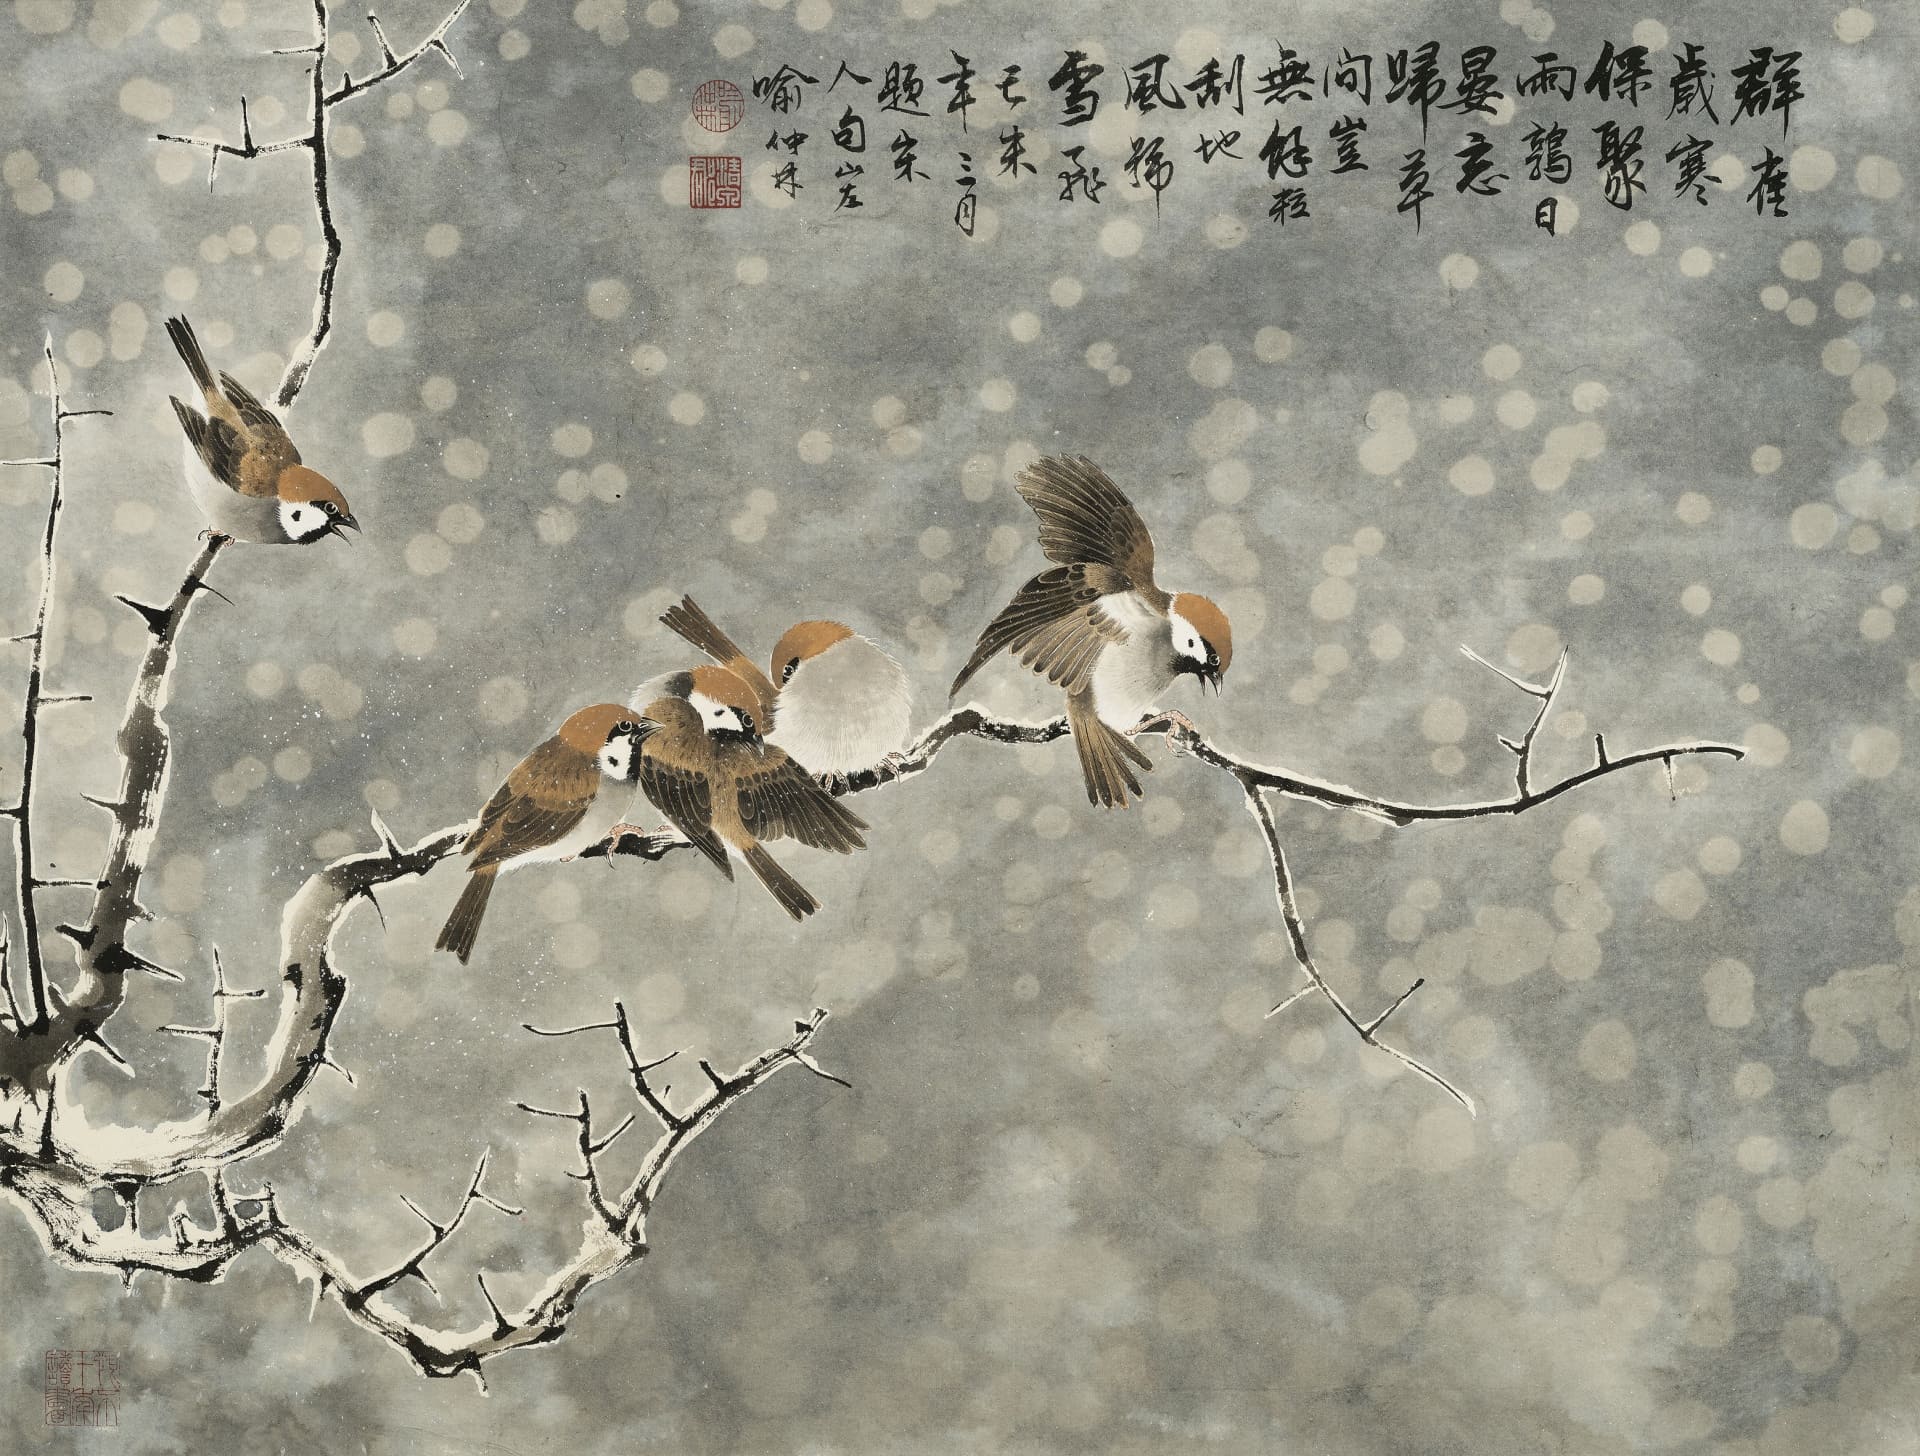 群雀
歲寒
保聚
兩鶉日
晏忘
歸草
間豈
無餘粒
刮地
風號
雪飛
己未
年三月
題宋
人句山左
喻仲林